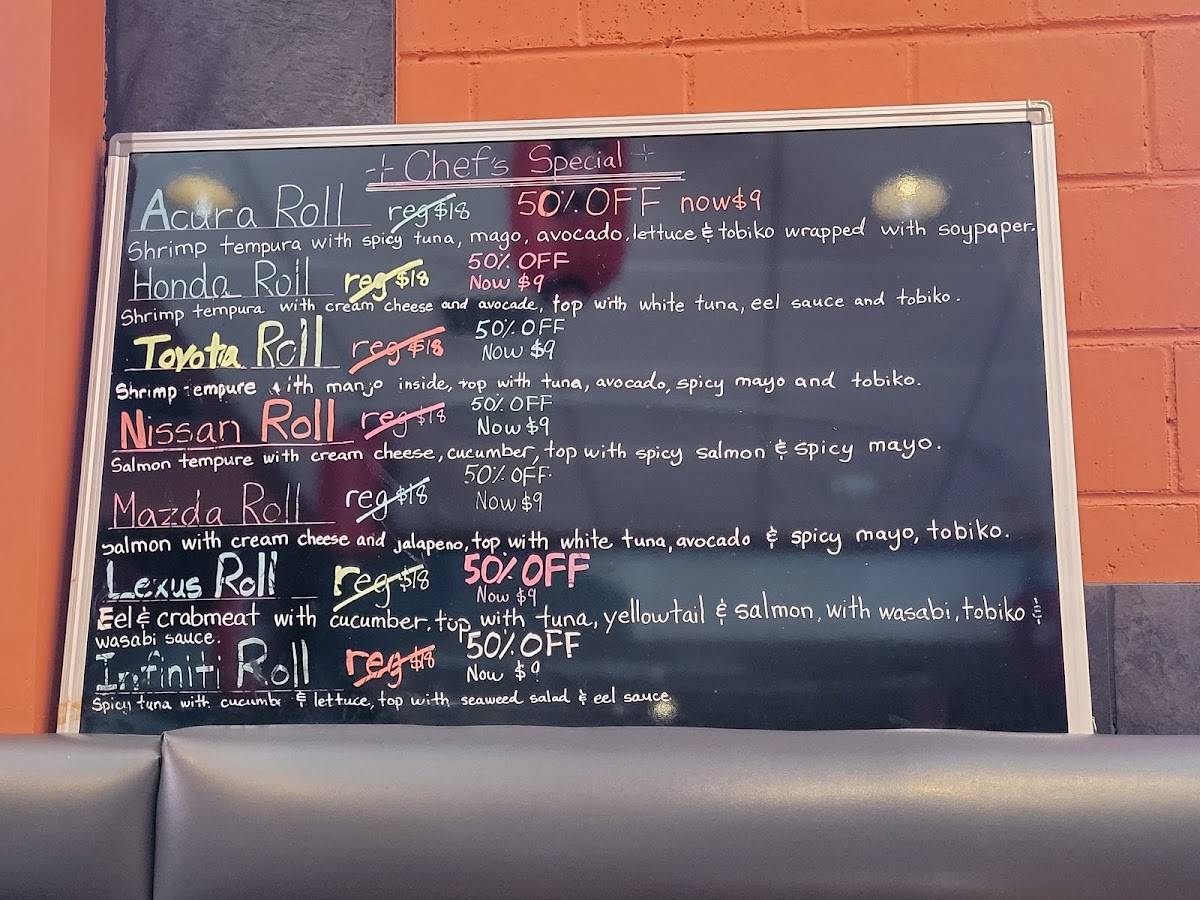 Chef's Special
Acura Roll reg $18 50% OFF now $9
Shrimp tempura with spicy tuna, mago, avocado, lettuce & tobiko wrapped with soypaper.
Honda Roll reg $18 50% OFF Now $9
Shrimp tempura with cream cheese and avocade, top with white tuna, eel sauce and tobiko.
Toyota Roll reg $18 50% OFF Now $9
Shrimp tempure with manjo inside, top with tuna, avocado, spicy mayo and tobiko.
Nissan Roll reg $18 50% OFF Now $9
Salmon tempure with cream cheese, cucumber, top with spicy salmon & spicy mayo.
Mazda Roll reg $18 50% OFF Now $9
Salmon with cream cheese and jalapeno, top with white tuna, avocado & spicy mayo, tobiko.
Lexus Roll reg $18 50% OFF Now $9
Eel & crabmeat with cucumber, top with tuna, yellowtail & salmon, with wasabi, tobiko &
wasabi sauce.
Infiniti Roll reg $18 50% OFF Now $9
Spicy tuna with cucumbr & lettuce, top with seaweed salad & eel sauce